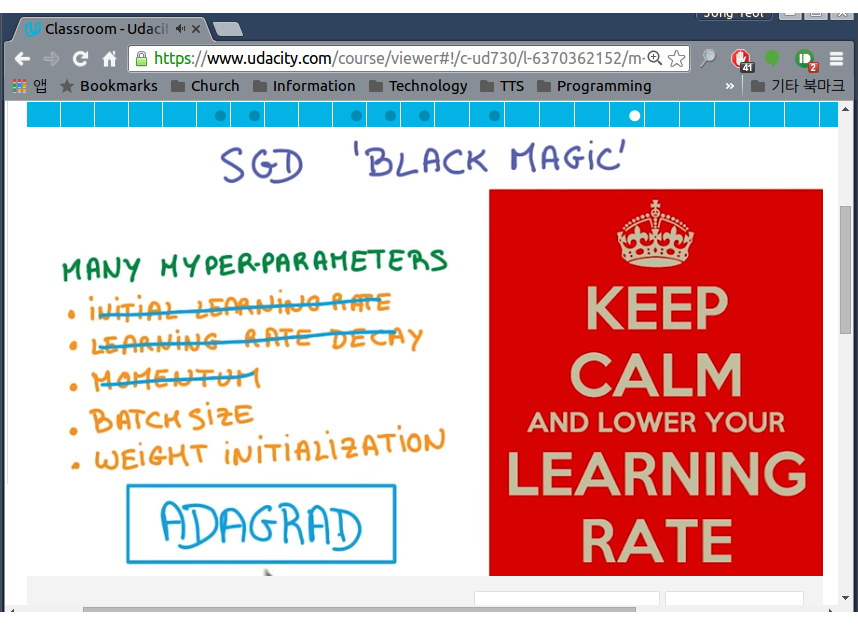 Jong Yeol
Classroom - Udacit
https://www.udacity.com/course/viewer#!/c-ud730/l-6370362152/m-
41
2
앱
Bookmarks
Church
Information
Technology
TTS
Programming
»
기타 북마크
SGD 'BLACK MAGIC'
MANY HYPER-PARAMETERS
• INITIAL LEARNING RATE
• LEARNING RATE DECAY
• MOMENTUM
• BATCH SIZE
• WEIGHT INITIALIZATION
ADAGRAD
KEEP
CALM
AND LOWER YOUR
LEARNING
RATE